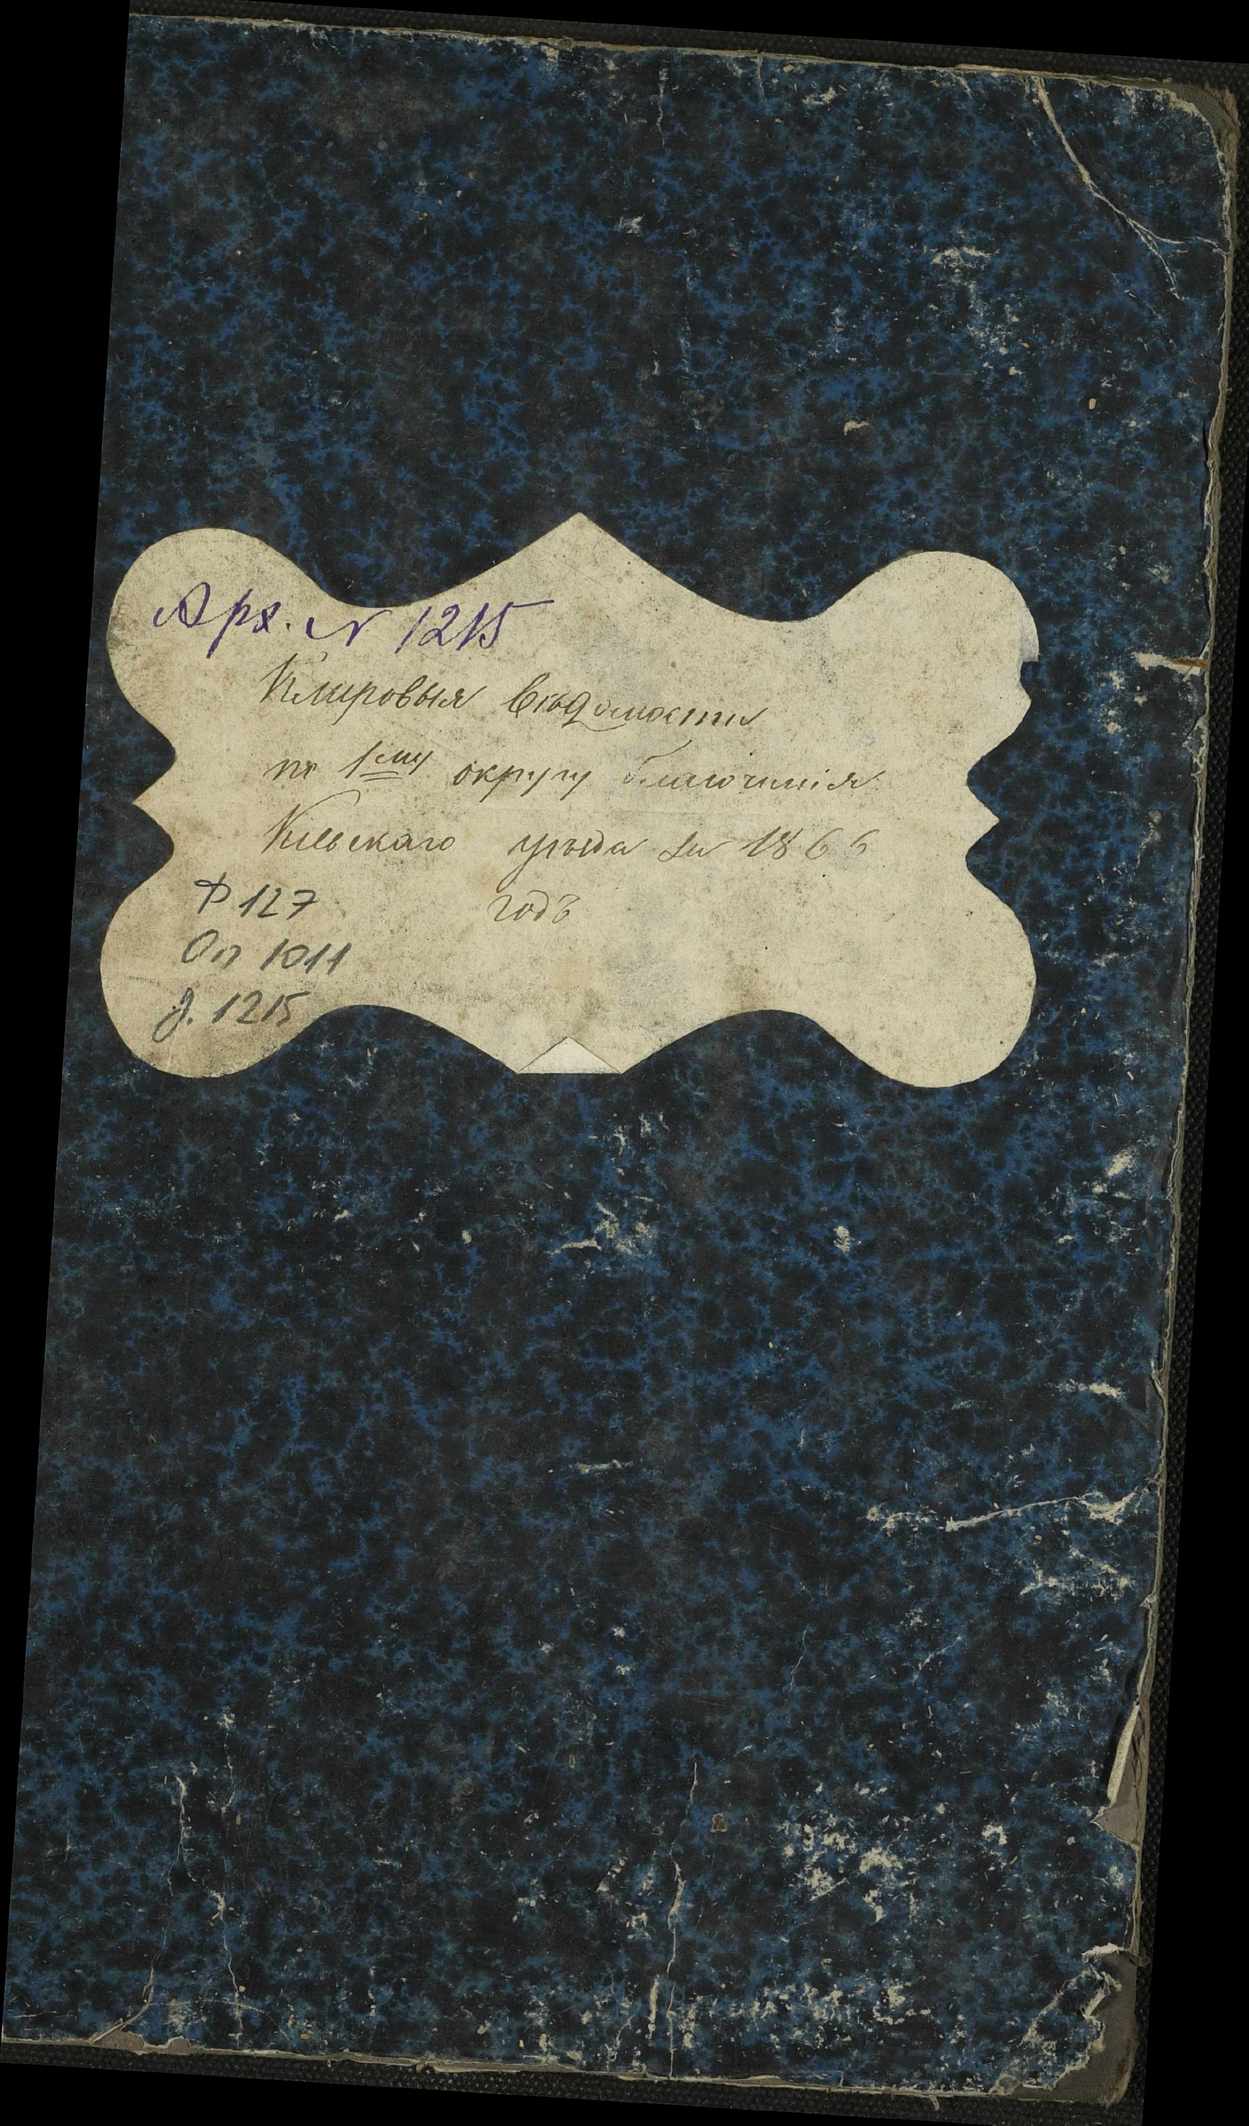 Арх. № 1215
Клировыя вѣдомости
по 1му округу благочинія
Кіевскаго уѣзда за 1866
годъ
Ф 127
Оп 1011
д. 1215